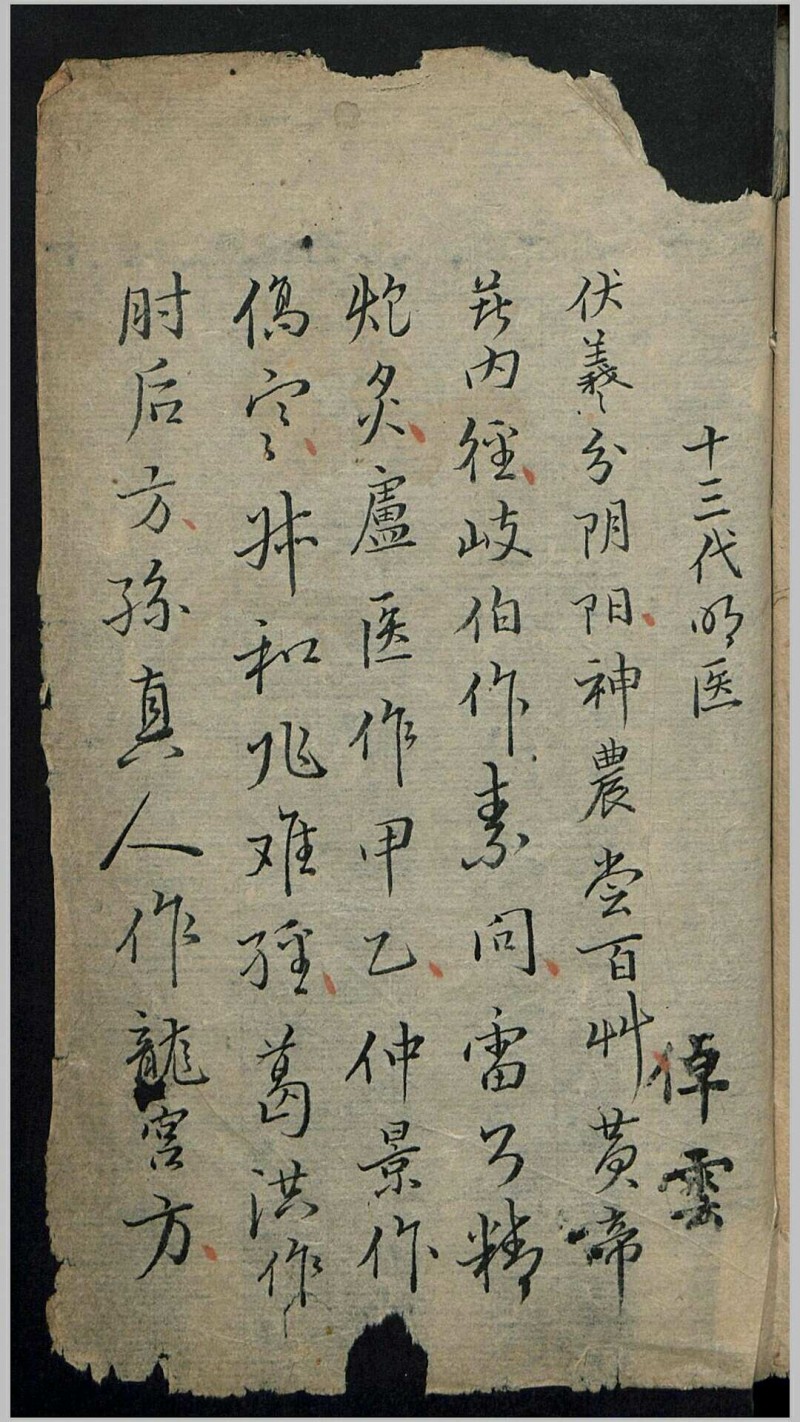 十三代明医
倬雲
伏羲分阴阳神農尝百艸黄啼
著内径岐伯作素问雷公精
炮炙盧医作甲乙仲景作
傷寒叔和兆难經葛洪作
肘后方孫真人作龍宫方